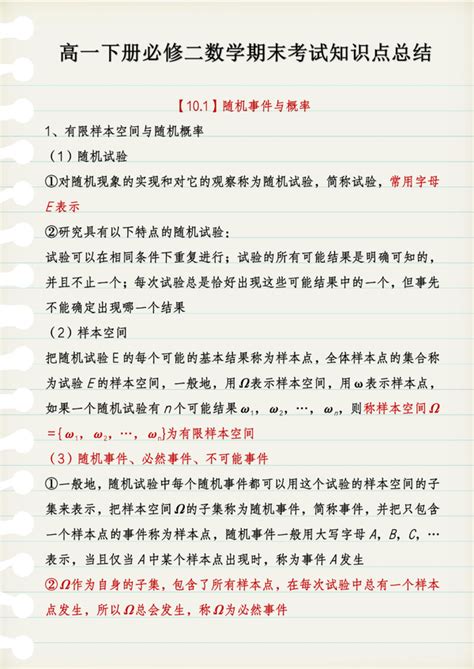 高一下册必修二数学期末考试知识点总结
【10.1】随机事件与概率
1、有限样本空间与随机概率
（1）随机试验
①对随机现象的实现和对它的观察称为随机试验，简称试验，常用字母
E表示
②研究具有以下特点的随机试验：
试验可以在相同条件下重复进行；试验的所有可能结果是明确可知的，
并且不止一个；每次试验总是恰好出现这些可能结果中的一个，但事先
不能确定出现哪一个结果
（2）样本空间
把随机试验E的每个可能的基本结果称为样本点，全体样本点的集合称
为试验E的样本空间，一般地，用Ω表示样本空间，用ω表示样本点，
如果一个随机试验有n个可能结果ω₁，ω₂，…，ωₙ，则称样本空间Ω
={ω₁，ω₂，…，ωₙ}为有限样本空间
（3）随机事件、必然事件、不可能事件
①一般地，随机试验中每个随机事件都可以用这个试验的样本空间的子
集来表示，把样本空间Ω的子集称为随机事件，简称事件，并把只包含
一个样本点的事件称为样本点，随机事件一般用大写字母A，B，C，…
表示，当且仅当A中某个样本点出现时，称为事件A发生
②Ω作为自身的子集，包含了所有样本点，在每次试验中总有一个样本
点发生，所以Ω总会发生，称Ω为必然事件